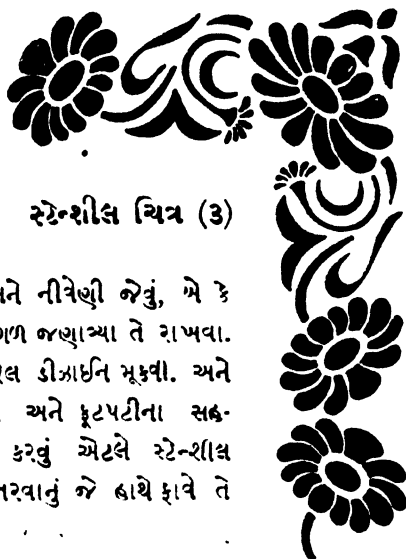 સ્ટેન્શીલ ચિત્ર (૩)
નીત્રેણી જેવું, એ કે
જણાવ્યા તે રાખવા.
ડીઝાઈન મૂકવી. અને
અને ફૂટપટીના સહ-
કરવું એટલે સ્ટેન્શીલ
જે હાથે ફાવે તે